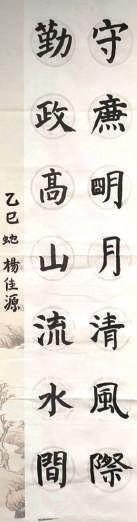 守廉明月清風際
勤政高山流水間
乙巳蛇 楊佳源